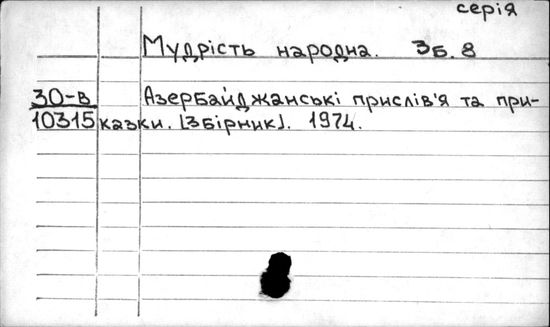 серія
Мудрість народна. Зб. 8
30-в Азербайджанські прислів'я та при-
10315 казки. [Збірник]. 1974.